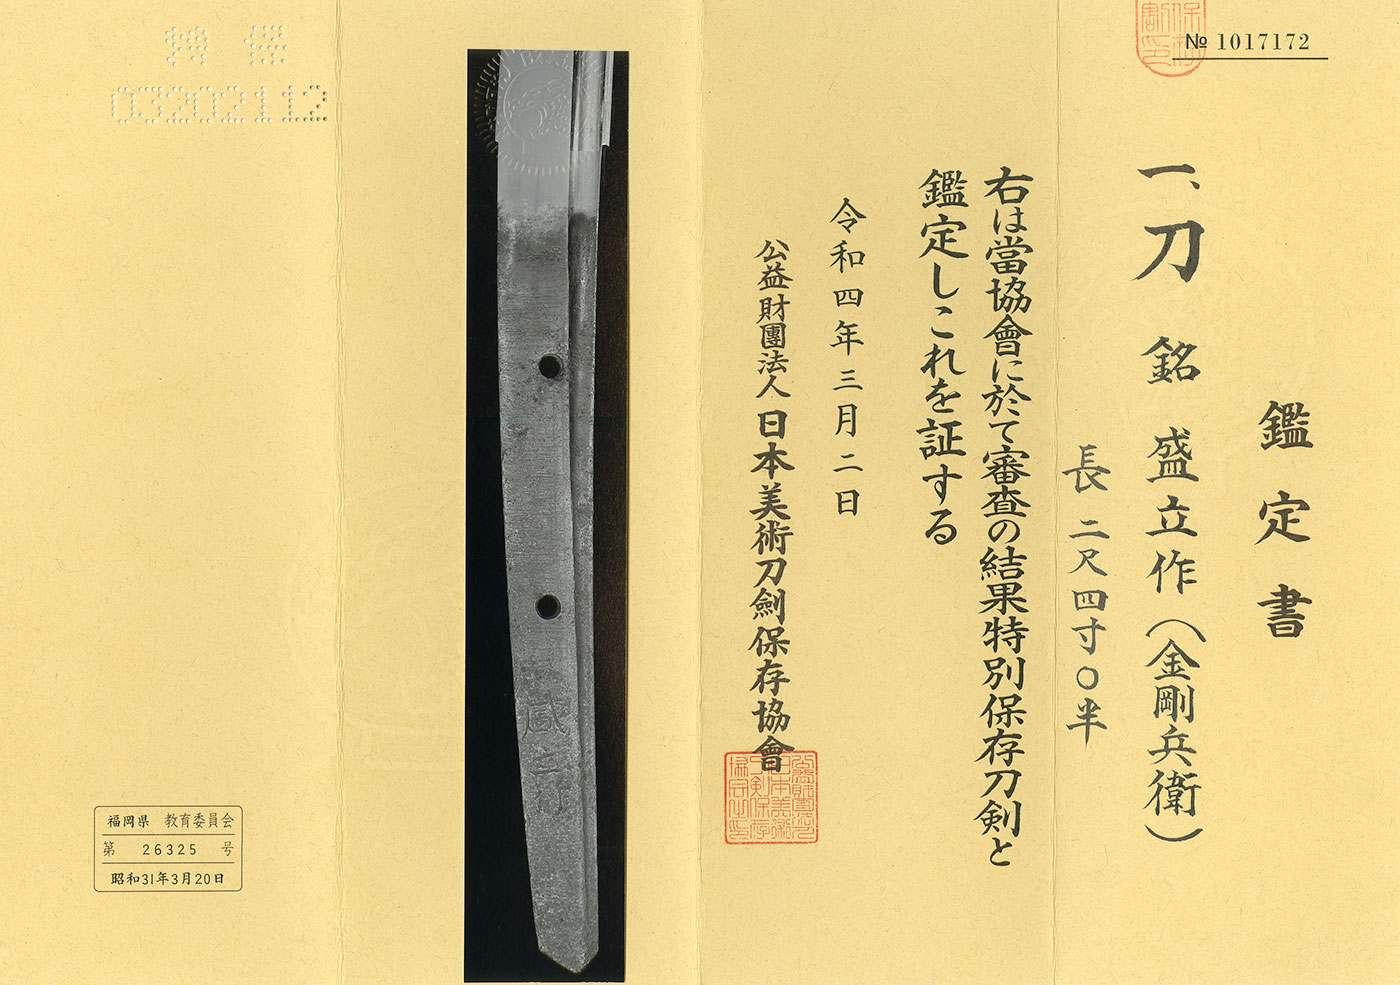 № 1017172
鑑定書
一、刀 銘 盛立作(金剛兵衛)
長 二尺四寸〇半
右は當協會に於て審査の結果特別保存刀剣と
鑑定しこれを証する
令和四年三月二日
公益財團法人 日本美術刀劍保存協會
盛立作
03202112
福岡県 教育委員会
第 26325 号
昭和31年3月20日